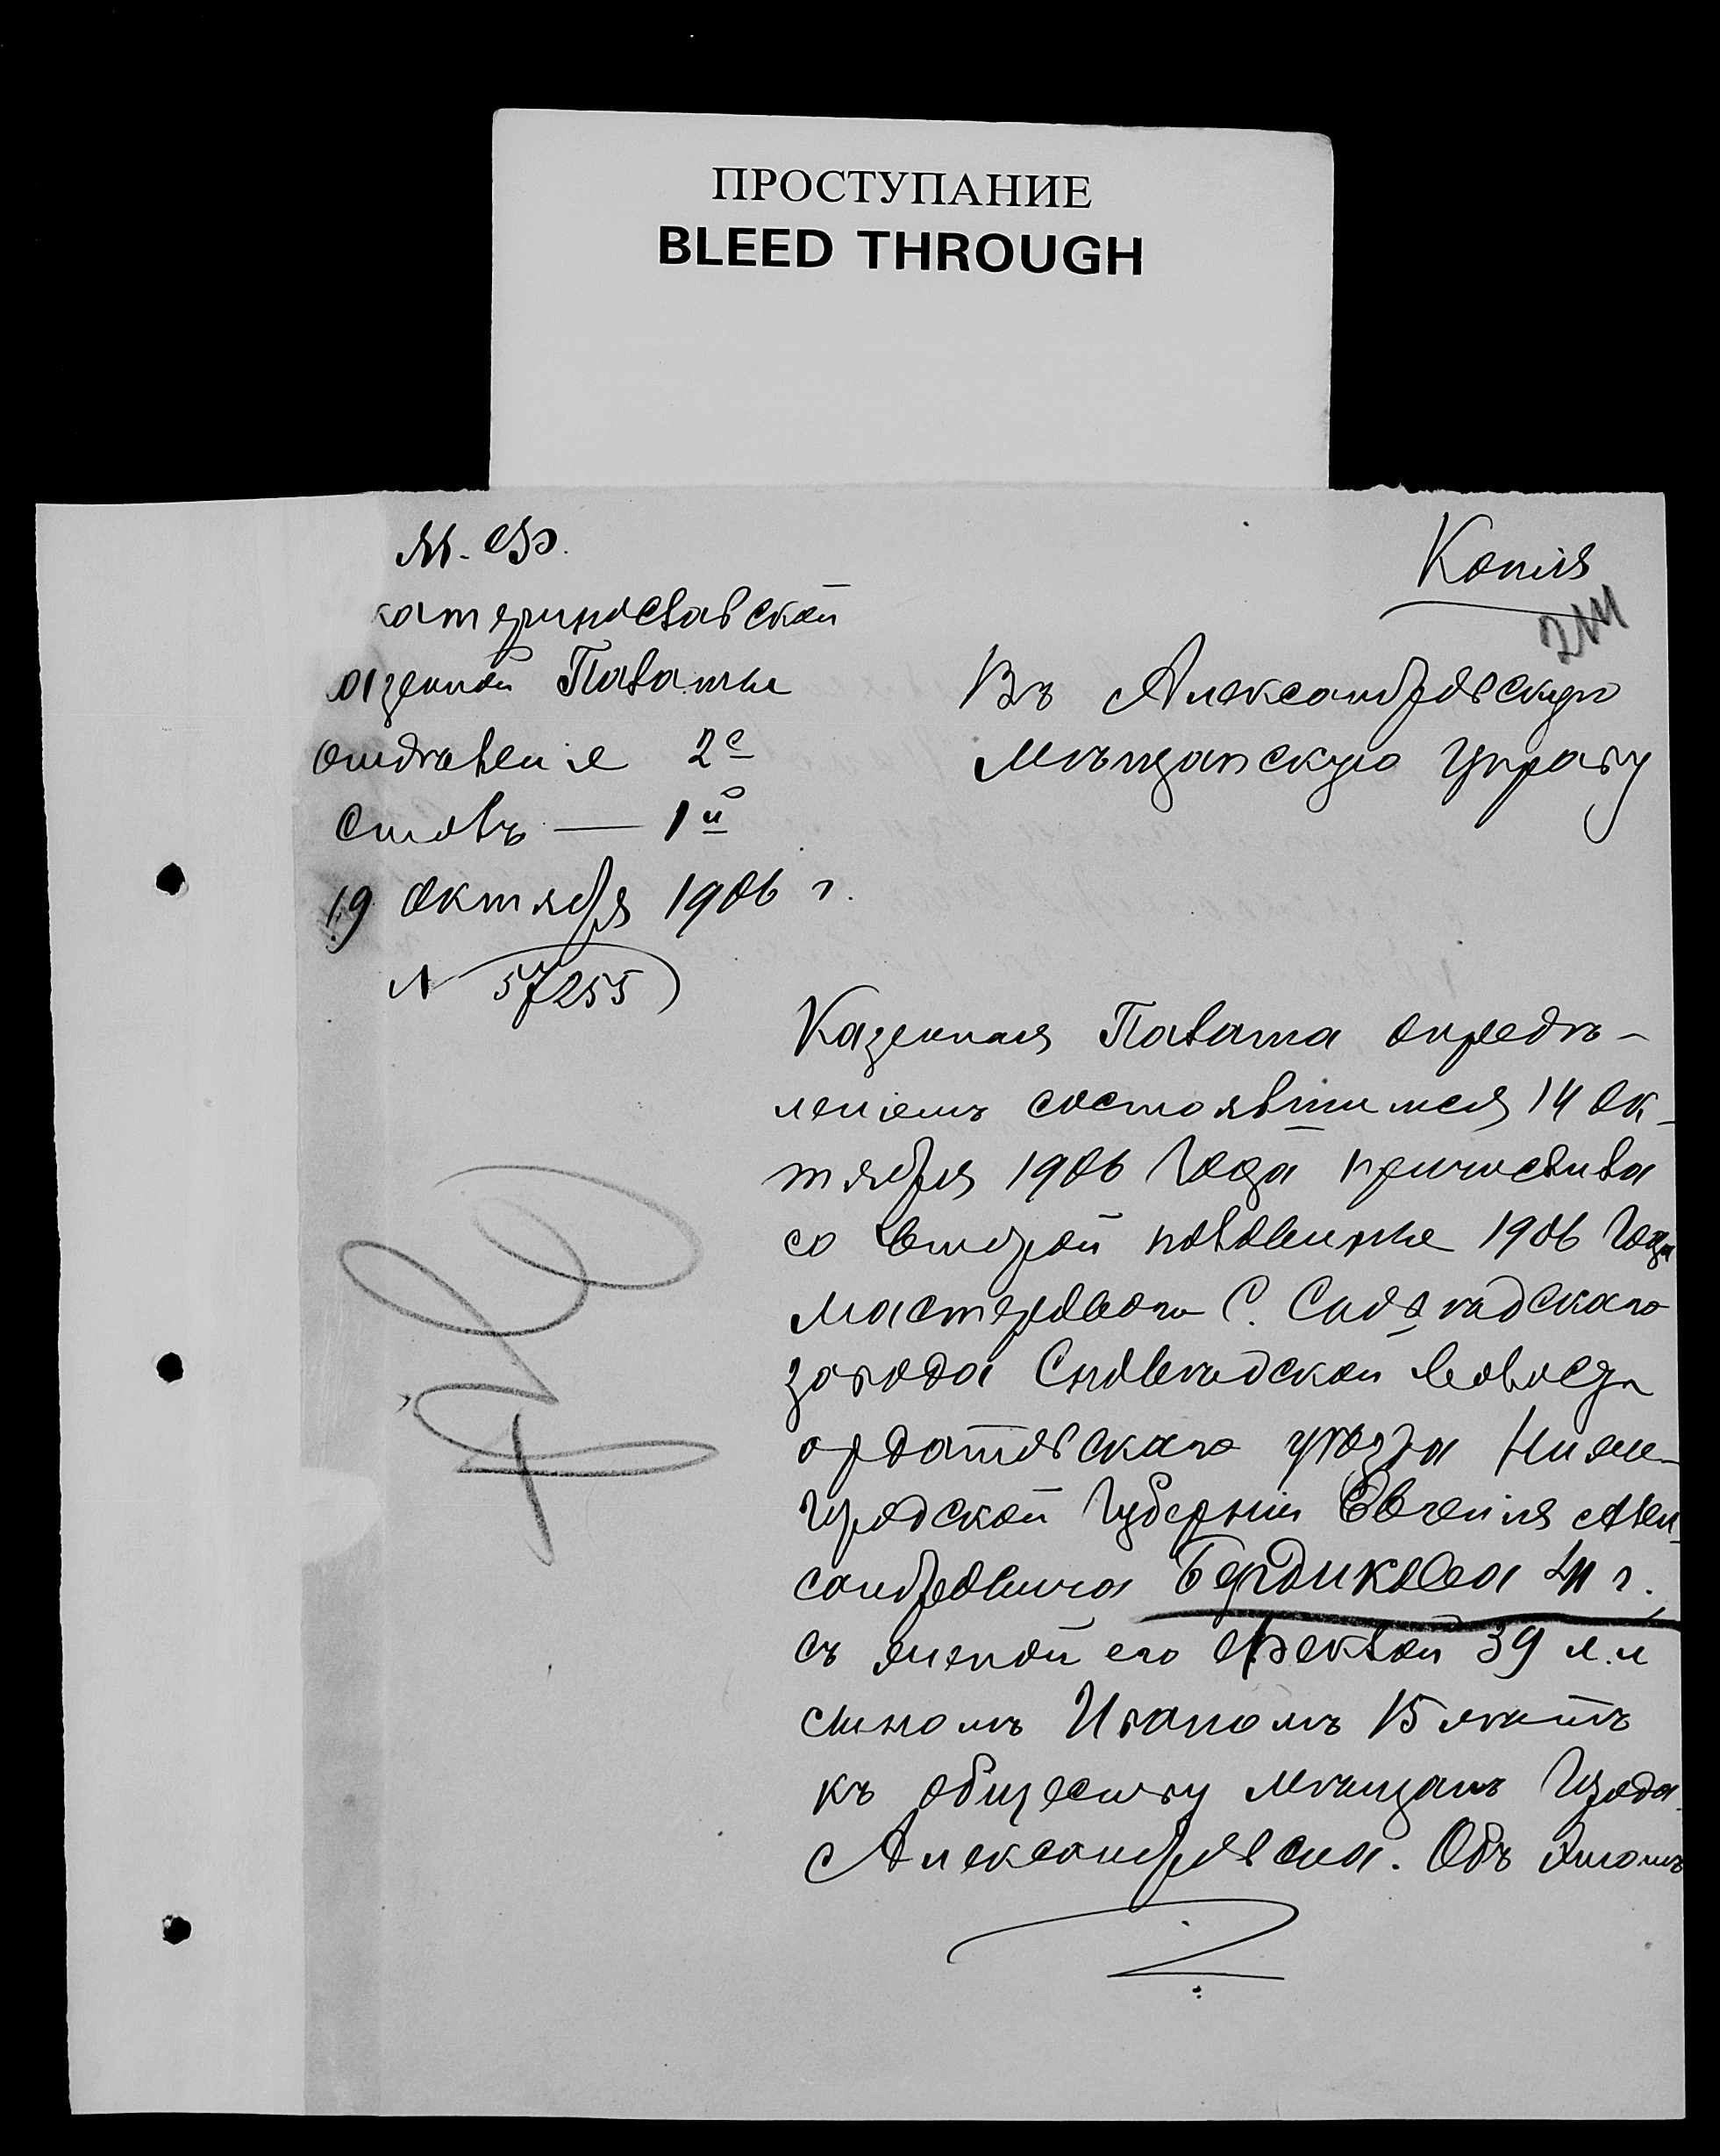 ПРОСТУПАНИЕ
BLEED THROUGH
М. Ф.
Копія
катеринославской
азенной Палаты
отдѣленіе 2е
Столъ — 1й
19 Октября 1906 г.
N 57255
Въ Александровскую
Мѣщанскую Управу
Казенная Палата опредѣ-
леніемъ состоявшимся 14 Ок-
тября 1906 года причислила
со второй половины 1906 года
Мастерового С.
завода волости
ардатовскаго уѣзда Ниже-
городской губерніи Евгенія Алек
сандровича Бердикова 41 г.
съ женой его Феклой 39 л. и
сыномъ Иваномъ 15 лѣтъ
къ обществу мѣщанъ города
Александровска. Объ этомъ